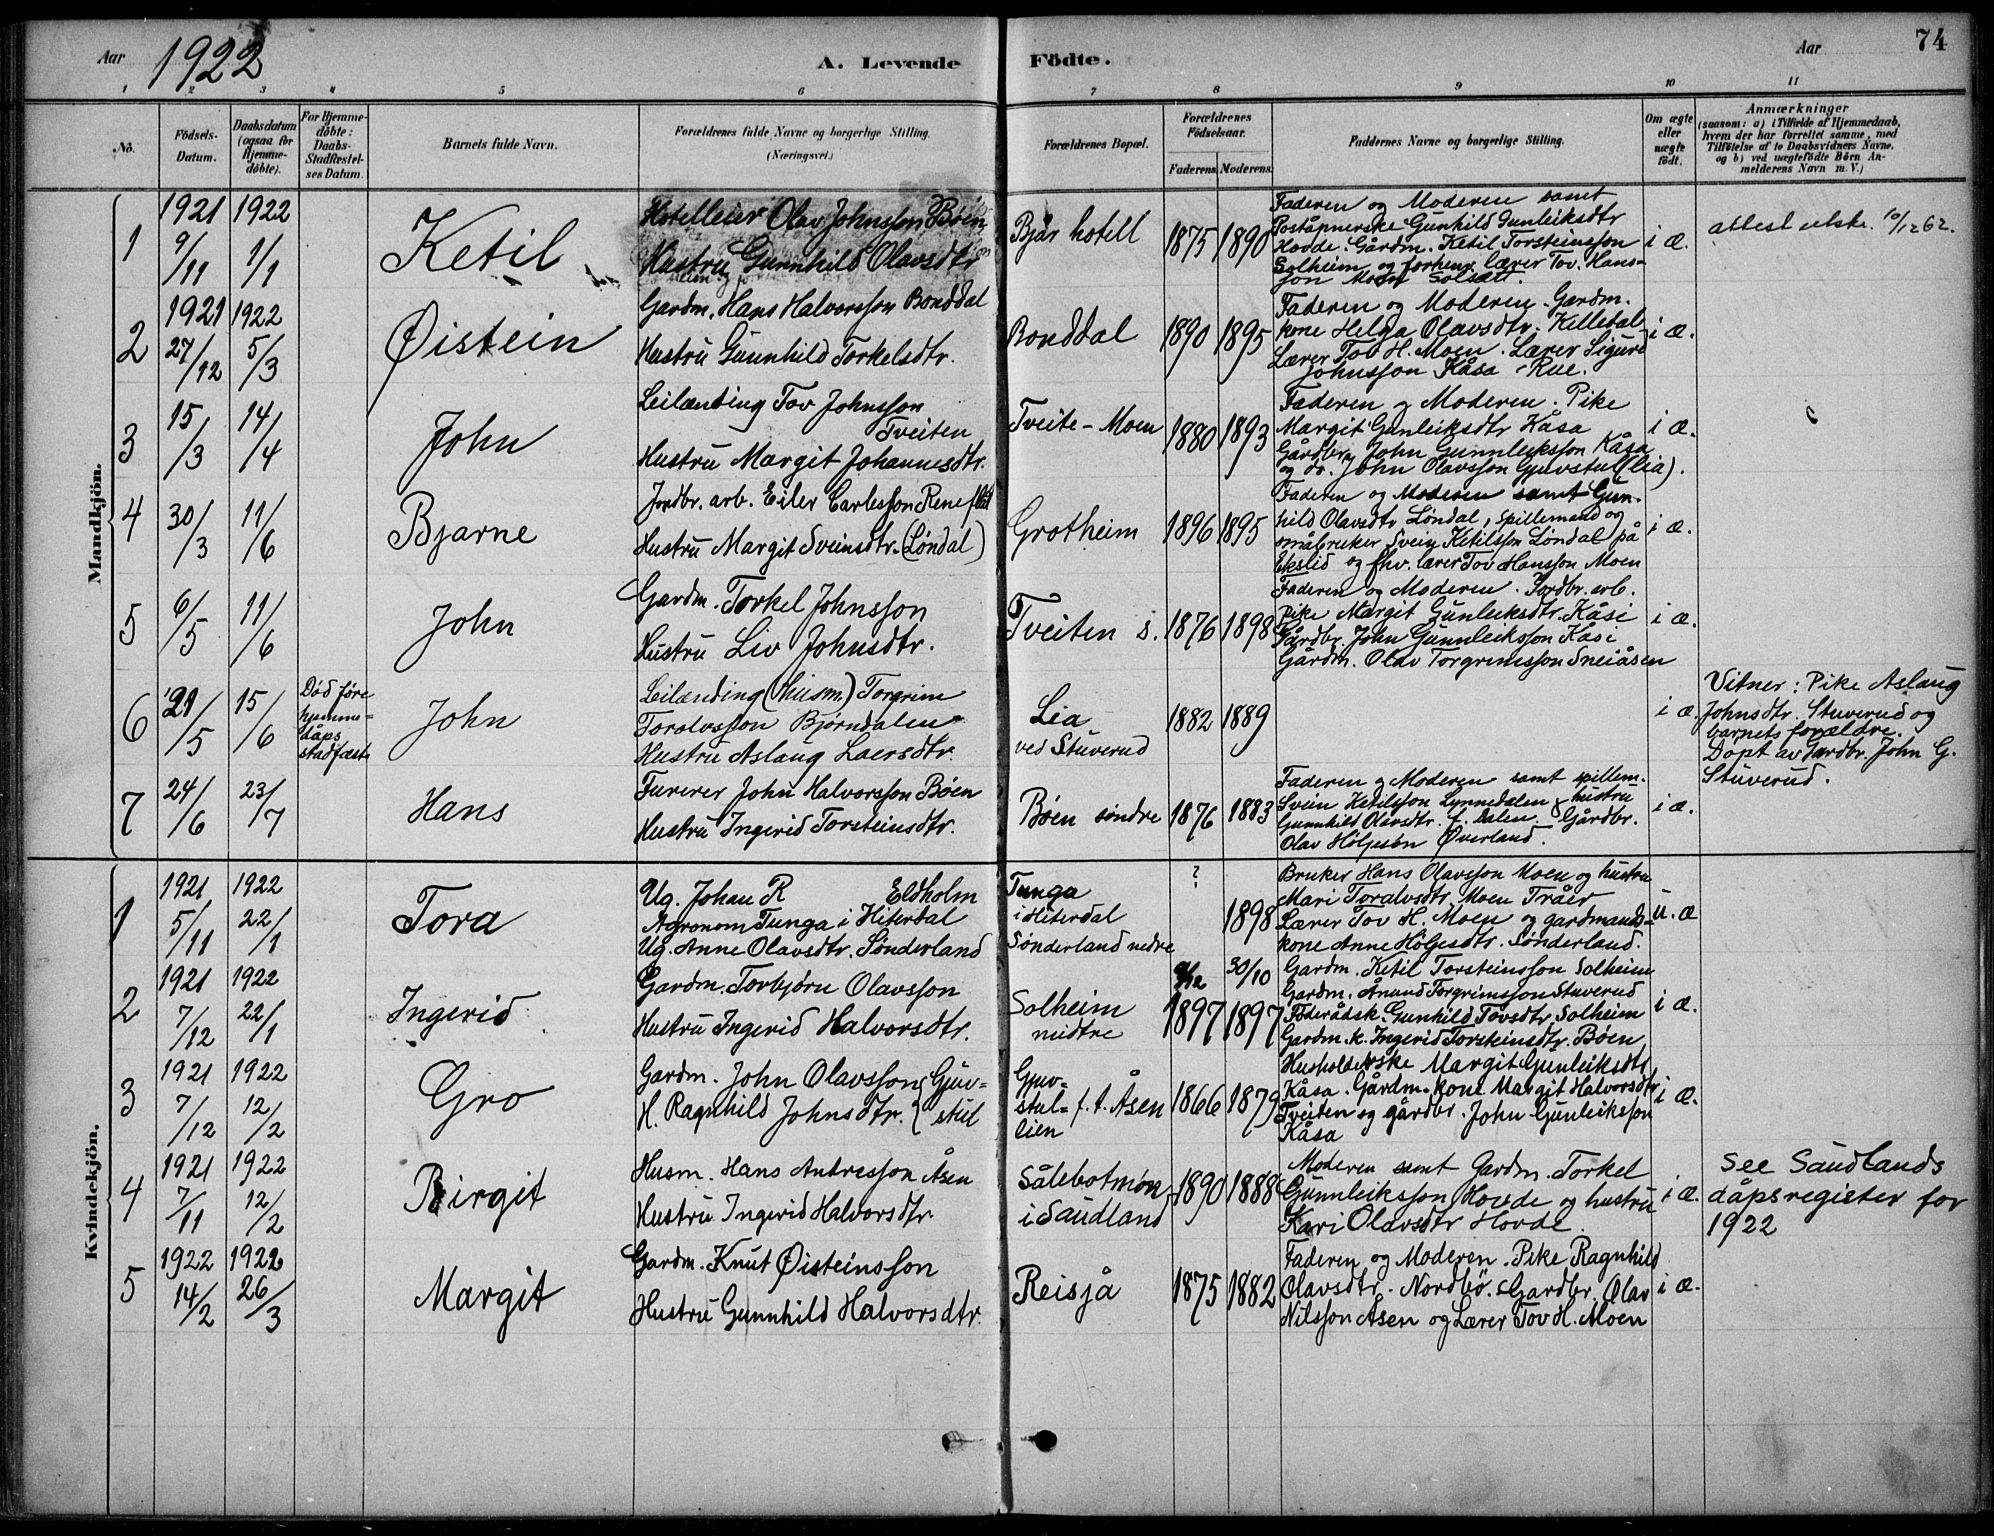 Aar 1922
A. Levende Fødte.
Aar
74
1 2 3 4 5 6 7 8 9 10 11
No.
Fødsels-
Datum.
Daabsdatum
(ogsaa for
Hjemme-
døbte).
For Hjemme-
døbte:
Daabs-
Stadfæstel-
ses Datum.
Barnets fulde Navn.
Forældrenes fulde Navne og borgerlige Stilling.
(Næringsvei.)
Forældrenes Bopæl.
Forældrenes
Fødselsaar.
Faderens Moderens
Faddernes Navne og borgerlige Stilling.
Om ægte
eller
uægte
født.
Anmærkninger
(saasom: a) i Tilfælde af Hjemmedaab,
hvem der har forrettet samme, med
Tilføielse af to Daabsvidners Navne.
og b) ved uægtefødte Børn An-
melderens Navn m. V.)
Mandkjön.
1
1921
9/11
1922
1/1
Ketil
Hotelleier Olav Johnsson Bøen
Hustru Gunnhild Olavsdtr
Bjår hotell
1875 1890
Faderen og Moderen samt
Poståpnerske Gunhild Gunleiksdtr
Hovde. Gårdm. Ketil Torsteinsson
Solheim og forhenv. lærer Tov. Hans-
son Moen
i æ.
attest utste. 10/12 62.
2
1921
27/12
1922
5/3
Øistein
Gardm. Hans Halvorsson Bonddal
Hustru Gunnhild Torkelsdtr.
Bonddal
1890 1895
Faderen og Moderen. Gardm.
kone Helga Olavsdtr. Killedal
Lærer Tov H. Moen. Lærer Sigurd
Johnsson Kåsa - Rue.
i æ.
3
15/3
14/4
John
Leilænding Tov Johnsson
Tveiten
Hustru Margit Johannesdtr.
Tveite - Moen
1880 1893
Faderen og Moderen. Pike
Margit Gunleiksdtr Kåsa
Gårdbr. John Gunnleiksson Kåsa
og do. John Olavsson Gjuvstul (lia).
i æ.
4
30/3
11/6
Bjarne
Jordbr. arb. Eiler Carlesson Rene
Hustru Margit Sveinsdtr. (Løndal)
Grotheim
1896 1895
Faderen og Moderen samt Gun-
hild Olavsdtr Løndal, spillemand og
småbruker Svein Ketilsson Løndal på
Ekslid og fhv. lærer Tov Hansson Moen
i æ.
5
6/5
11/6
John
Gardm. Torkel Johnsson
Hustru Liv Johnsdtr.
Tveiten s.
1876 1898
Faderen og Moderen. Jordbr. arb.
pike Margit Gunleiksdtr. Kåsi
Gårdbr. John Gunnleiksson Kåsi
Gårdm. Olav Torgrimsson Sneiåsen
i æ.
6
21/5
15/6
Død føre
hjemme-
dåps
stadfæst.
John
Leilænding (husm) Torgrim
Toralvsson Bjørndalen
Hustru Aslaug Laersdtr.
Lia
ved Stuverud
1882 1889
i æ.
Vitner: Pike Aslaug
Johnsdtr. Stuverud og
barnets forældre.
Døpt av Gardbr. John G.
Stuverud.
7
24/6
23/7
Hans
Furerer John Halvorsson Bøen
Hustru Ingerid Torsteinsdtr.
Bøen søndre
1876 1883
Faderen og Moderen samt spillem.
Svein Ketilsson Lynnedalen & hustru
Gunnhild Olavsdtr. f. Dalen. Gårdbr.
Olav Hølgeson Øverland.
i æ.
Kvindekjön.
1
1921
5/11
1922
22/1
Tora
Ug. Johan R Eldholm
Agronom Tunga i Hiterdal
Ug. Anne Olavsdtr. Sønderland
Tunga
i Hiterdal
Sønderland nedre
? 1898
Bruker Hans Olavsson Moen og hustru
Mari Toralvsdtr. Moen Tråer
Lærer Tov H. Moen og gardmands-
kone Anne Hølgesdtr. Sønderland.
u. æ
2
1921
7/12
1922
22/1
Ingerid
Gardm. Torbjørn Olavsson
Hustru Ingerid Halvorsdtr.
Solheim
midtre
1897
30/10
1897
Gardm. Ketil Torsteinsson Solheim
Gardm. Ånund Torgrimsson Stuverud
Føderådsk. Gunhild Tovsdtr. Solheim
Gardm. k. Ingerid Torsteinsdtr. Bøen
i æ.
3
1921
7/12
1922
12/2
Gro
Gardm. John Olavsson Gjuv-
H. Ragnhild Johnsdtr. } stul
Gjuv-
stul- f. t. Åsen
lien
1866 1879
Husholderske Margit Gunleiksdtr
Kåsa. Gårdm. kone Margit Halvorsdtr
Tveiten og gårdbr. John Gunleiksson
Kåsa
i æ.
4
1921
7/11
1922
12/2
Birgit
Husm. Hans Andresson Åsen
Hustru Ingerid Halvorsdtr.
Sålebotmøn
i Saudland
1890 1888
Moderen samt Gardm. Torkel
Gunnleiksson Hovde og hustru
Kari Olavsdtr Hovde.
i æ.
See Saudlands
dåpsregister for
1922
5
1922
14/2
1922
26/3
Margit
Gardm. Knut Øisteinsson
Hustru Gunnhild Halvorsdtr.
Reisjå
1875 1882
Faderen og Moderen. Pike Ragnhild
Olavsdtr. Nordbö. Gardbr. Olav
Nilsson Åsen og Lærer Tov H. Moen
i æ.